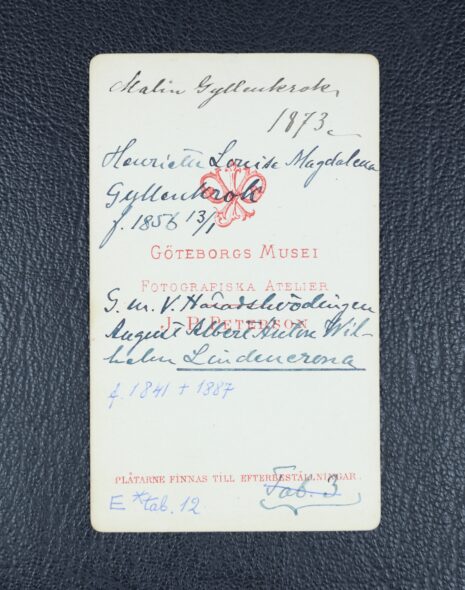 Malin Gyllenkrok
1873
Henriette Louise Magdalena
Gyllenkrok
f. 1856 13/1
GÖTEBORGS MUSEI
FOTOGRAFISKA ATELIER
G. m. V. Häradshövdingen
J. P. PETERSON
August Albert Anton Wil-
helm Lindencrona
f. 1841 + 1887
PLÅTARNE FINNAS TILL EFTERBESTÄLLNINGAR.
Tab. 3
E * tab. 12.